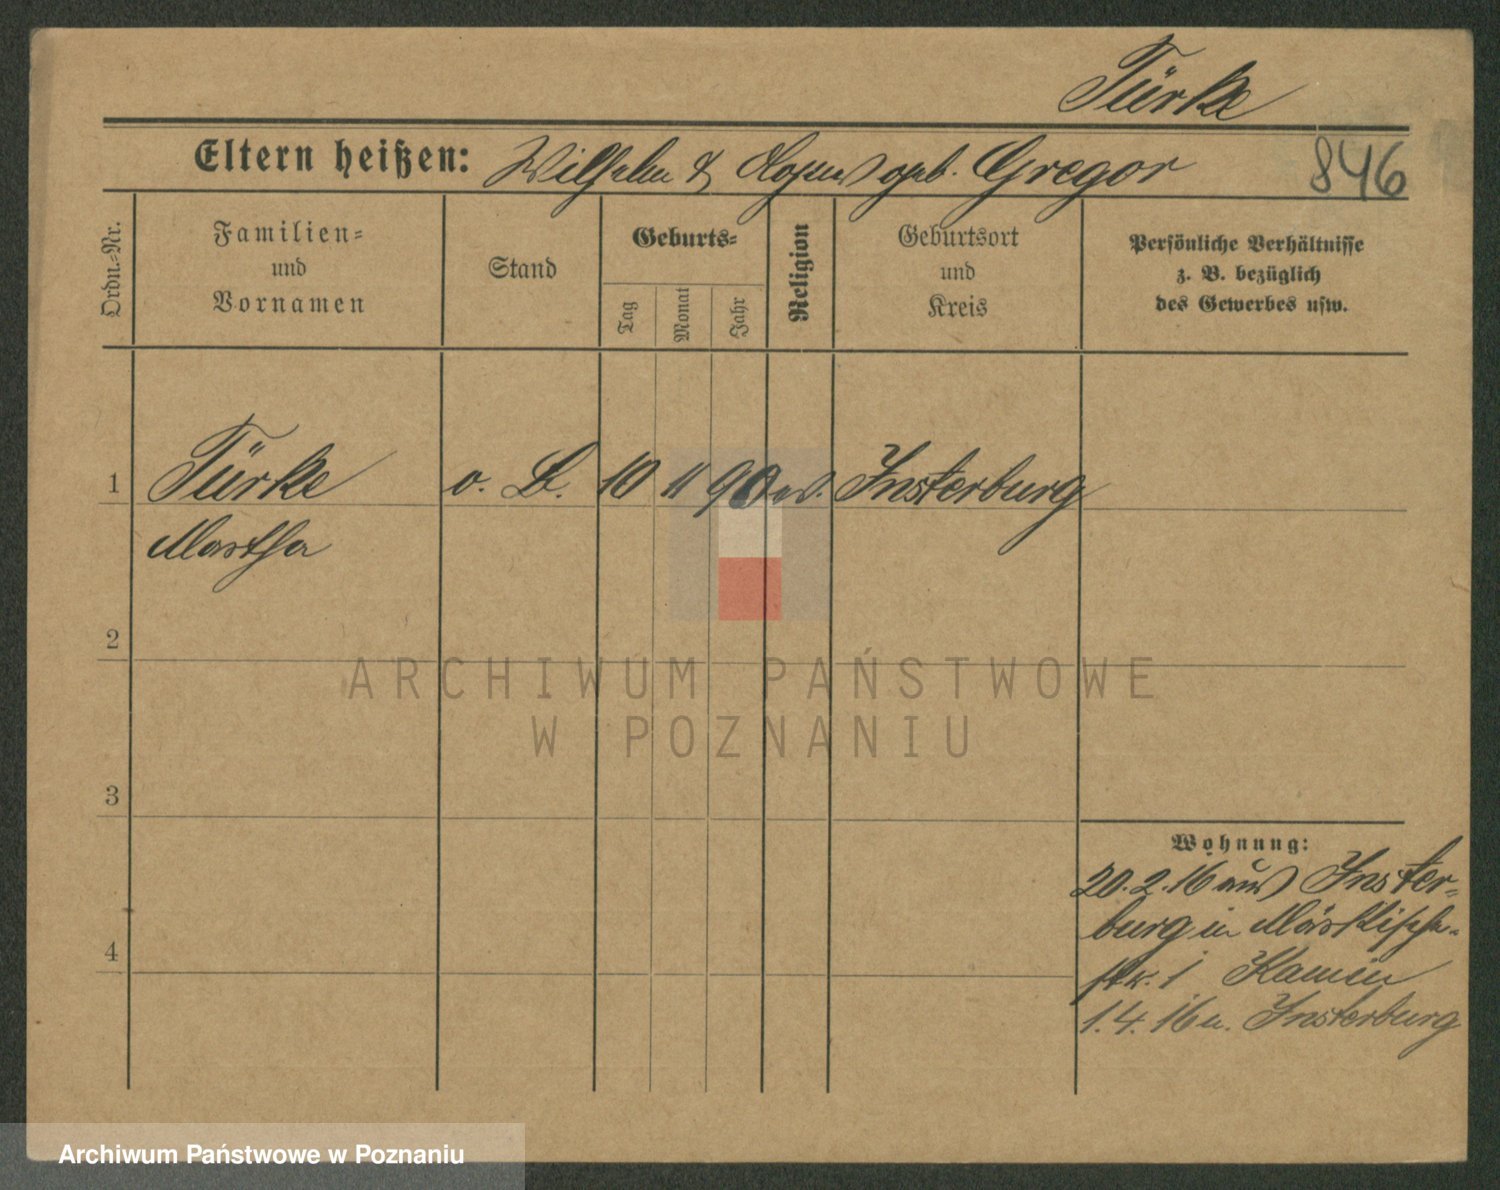 Türke
Eltern heißen: Wilhelm & geb. Gregor
846
Ordn.-Nr.
Familien-
und
Vornamen
Stand
Geburts-
Tag
Monat
Jahr
Religion
Geburtsort
und
Kreis
Persönliche Verhältnisse
z. B. bezüglich
des Gewerbes usw.
1 Türke o. B. 10 11 90 ev. Insterburg
Martha
2
3
4
Wohnung:
20.2.16 aus Inster-
burg in Märkische-
str. 1 Kamin
1.4.16 n. Insterburg
ARCHIWUM PAŃSTWOWE
W POZNANIU
Archiwum Państwowe w Poznaniu